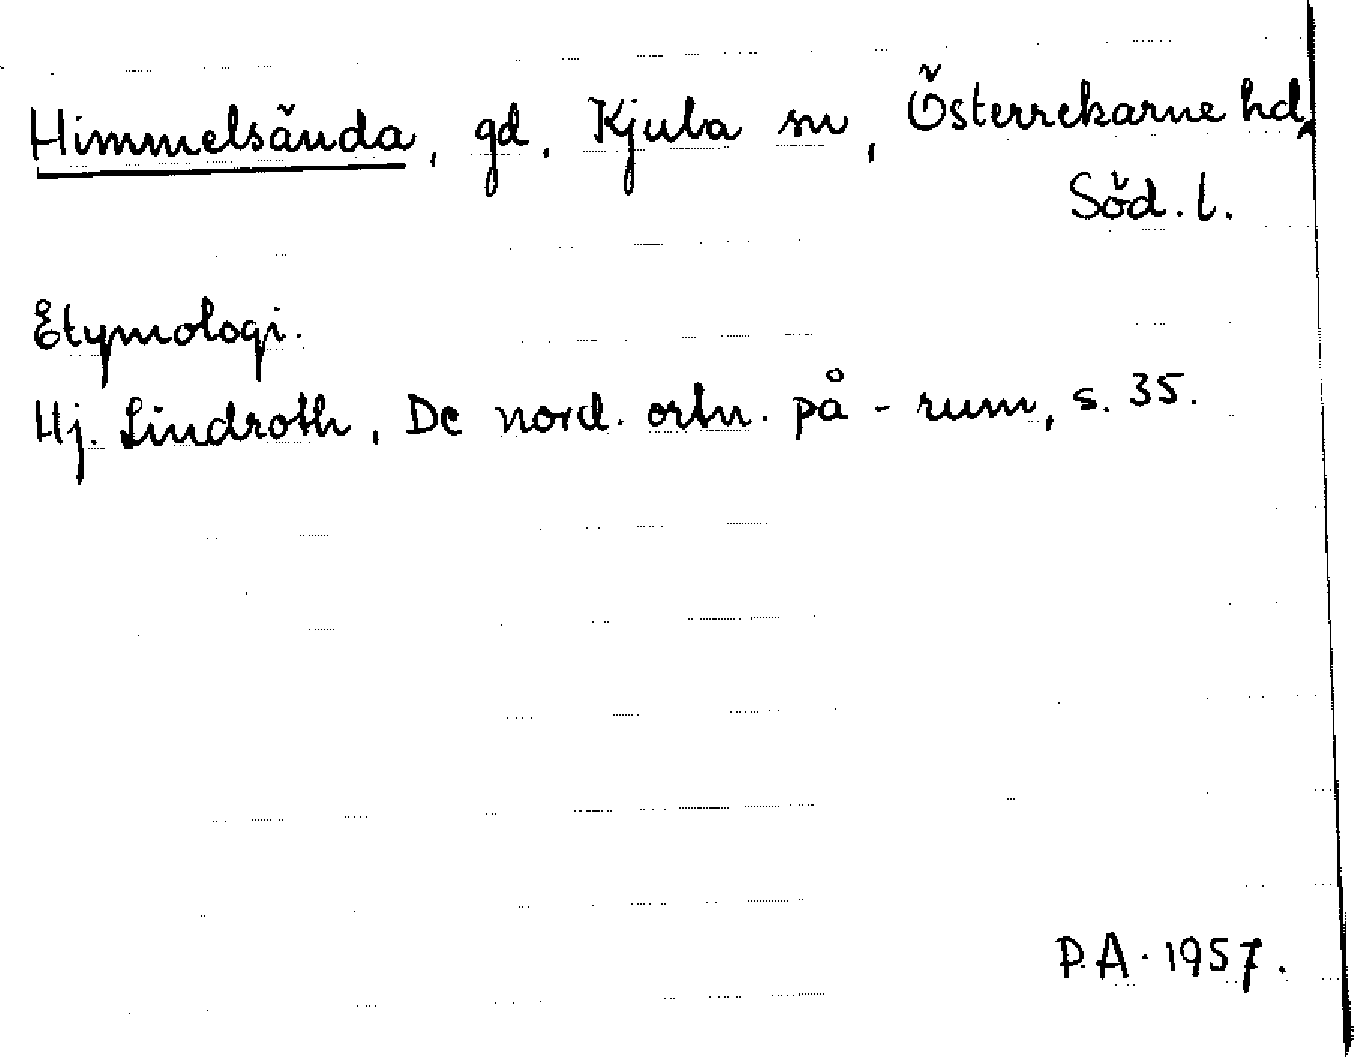 Himmelsända, gd. Kjula sn, Österrekarne hd,
Söd. l.
Etymologi.
Hj. Lindroth, De nord. ortn. på - rum, s. 35.
P.A. 1957.